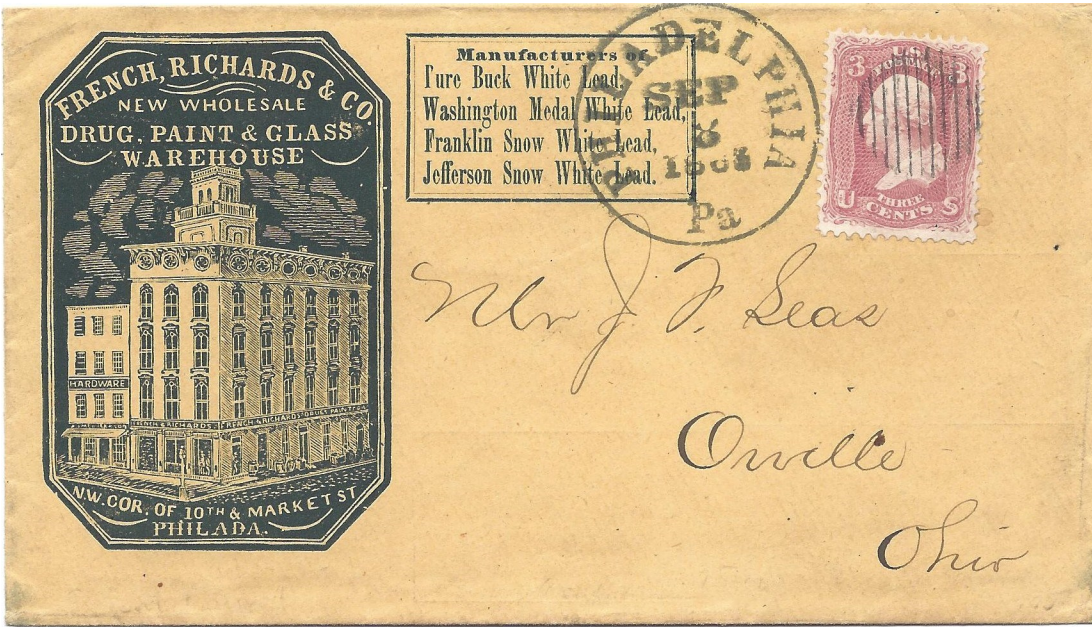 FRENCH, RICHARDS & CO.
NEW WHOLESALE
DRUG, PAINT & GLASS
WAREHOUSE
HARDWARE
FRENCH & RICHARDS
FRENCH & RICHARDS DRUGS PAINT
N.W. COR. OF 10TH & MARKET ST
PHILADA.
Manufacturers of
Pure Buck White Lead,
Washington Medal White Lead,
Franklin Snow White Lead,
Jefferson Snow White Lead.
PHILADELPHIA
SEP
8
Pa
U.S.
3 POSTAGE 3
THREE
U CENTS S
Mr J. F. Seas
Orville
Ohio